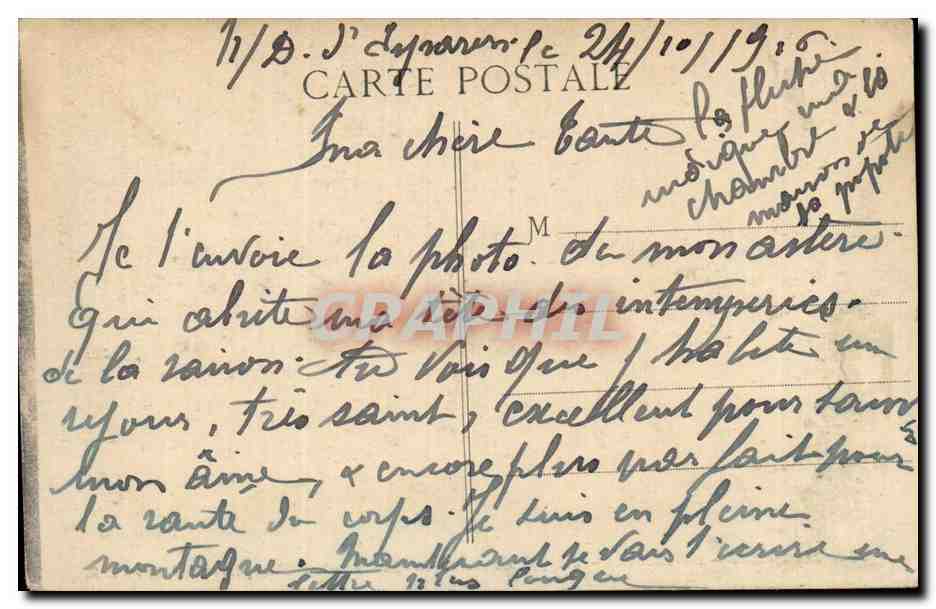 le 24/10/1916.
CARTE POSTALE
Ma chère Tante
la flèche
indique ma
chambre & la
maison de
la popote
M
Je t'envoie la photo du monastère.
Qui abrite ma tête des intemperies.
de la saison. Tu vois que j'habite un
sejour, très saint, excellent pour
mon âme, & encore plus parfait pour
la santé du corps. Je suis en pleine
montagne. Maintenant je vais t'ecrire une
lettre plus longue
CARTAPHIL